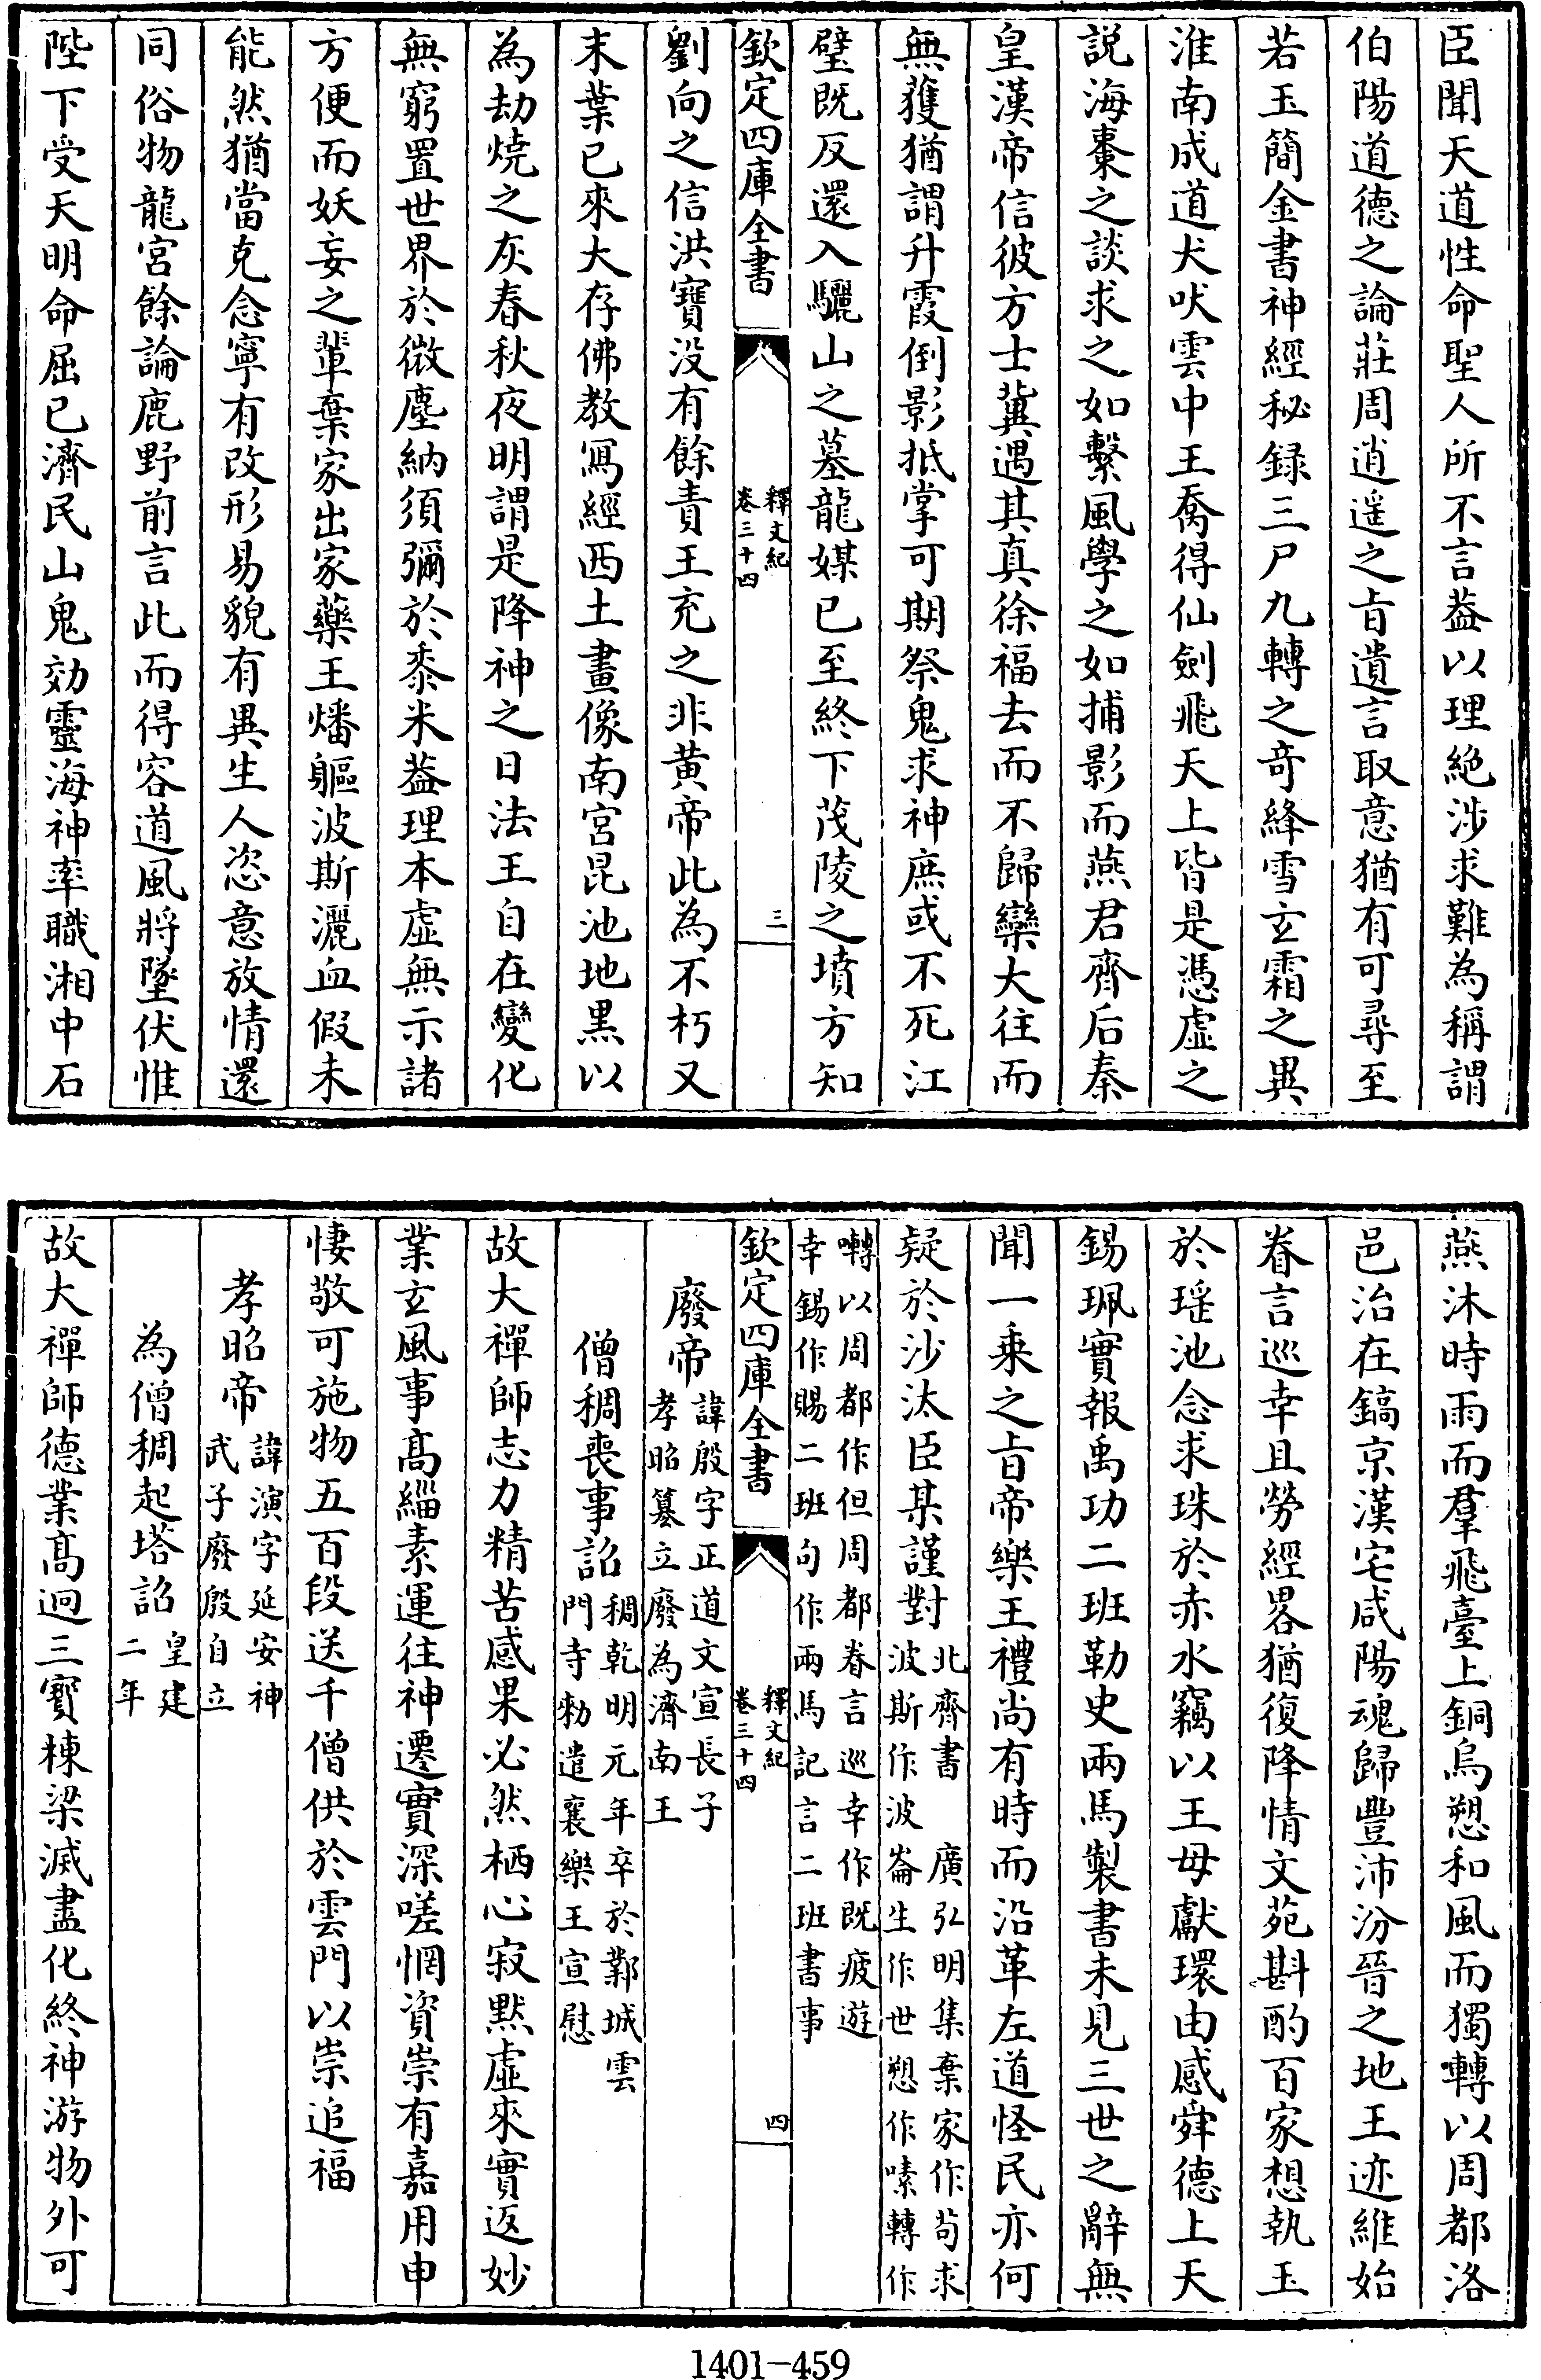 臣聞天道性命聖人所不言葢以理絶涉求難為稱謂
伯陽道德之論莊周逍遥之㫖遺言取意猶有可尋至
若玉簡金書神經秘録三尸九轉之竒絳雪玄霜之異
淮南成道犬吠雲中王喬得仙劒飛天上皆是憑虛之
説海棗之談求之如繫風學之如捕影而燕君齊后秦
皇漢帝信彼方士冀遇其真徐福去而不歸欒大往而
無獲猶謂升霞倒影抵掌可期祭鬼求神庶或不死江
璧既反還入驪山之墓龍媒已至終下茂陵之墳方知
欽定四庫全書
釋文紀
卷三十四
三
劉向之信洪寶没有餘責王充之非黄帝此為不朽又
末葉已來大存佛教寫經西土畫像南宮昆池地黒以
為劫燒之灰春秋夜明謂是降神之日法王自在變化
無窮置世界於微塵納須彌於黍米葢理本虛無示諸
方便而妖妄之輩棄家出家藥王燔軀波斯灑血假未
能然猶當克念寧有改形易貌有異生人恣意放情還
同俗物龍宮餘論鹿野前言此而得容道風將墜伏惟
陛下受天明命屈已濟民山鬼効靈海神率職湘中石
燕沐時雨而羣飛臺上銅烏愬和風而獨轉以周都洛
邑治在鎬京漢宅咸陽魂歸豐沛汾晉之地王迹維始
眷言巡幸且勞經畧猶復降情文苑斟酌百家想執玉
於瑤池念求珠於赤水竊以王母獻環由感舜德上天
錫珮實報禹功二班勒史兩馬製書未見三世之辭無
聞一乗之㫖帝樂王禮尚有時而沿革左道怪民亦何
疑於沙汰臣某謹對北齊書 廣弘明集棄家作茍求
波斯作波崙生作世愬作嗉轉作
囀以周都作但周都眷言巡幸作既疲遊
幸錫作賜二班句作兩馬記言二班書事
欽定四庫全書
釋文紀
卷三十四
四
廢帝諱殷字正道文宣長子
孝昭簒立廢為濟南王
僧稠喪事詔稠乾明元年卒於鄴城雲
門寺勅遣襄樂王宣慰
故大禪師志力精苦感果必然栖心寂黙虛來實返妙
業玄風事髙緇素運往神遷實深嗟惘資崇有嘉用申
悽敬可施物五百段送千僧供於雲門以崇追福
孝昭帝諱演字延安神
武子廢殷自立
為僧稠起塔詔皇建
二年
故大禪師德業髙迥三寳棟梁滅盡化終神游物外可
1401-459